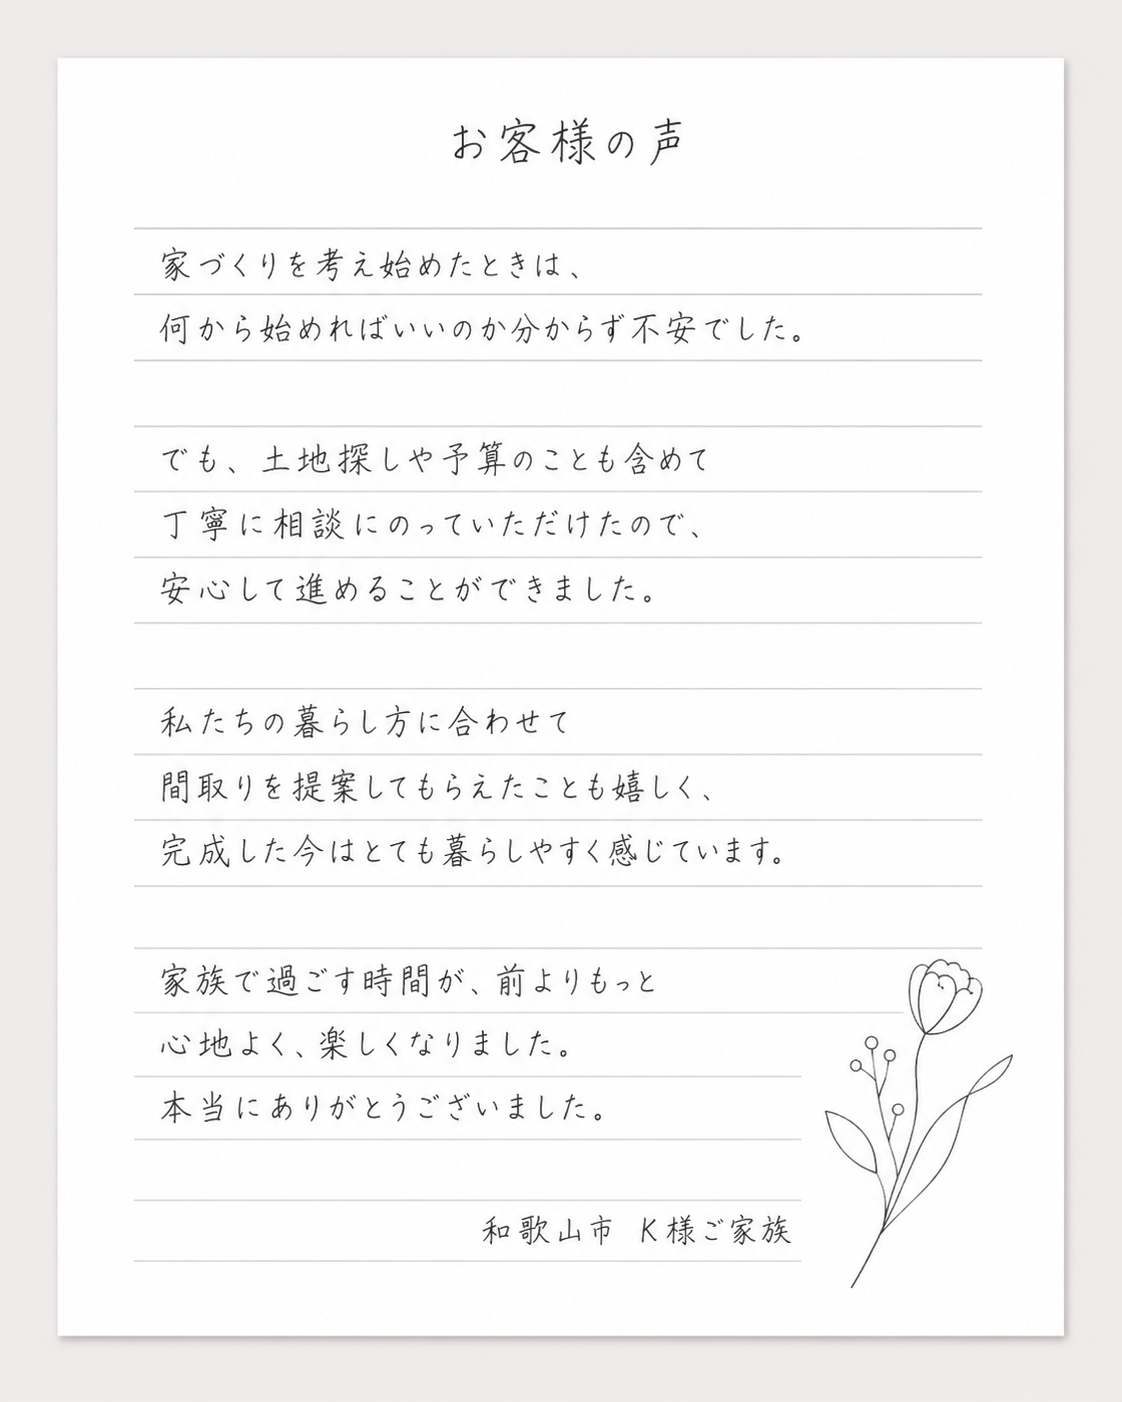 お客様の声
家づくりを考え始めたときは、
何から始めればいいのか分からず不安でした。
でも、土地探しや予算のことも含めて
丁寧に相談にのっていただけたので、
安心して進めることができました。
私たちの暮らし方に合わせて
間取りを提案してもらえたことも嬉しく、
完成した今はとても暮らしやすく感じています。
家族で過ごす時間が、前よりもっと
心地よく、楽しくなりました。
本当にありがとうございました。
和歌山市 K様ご家族